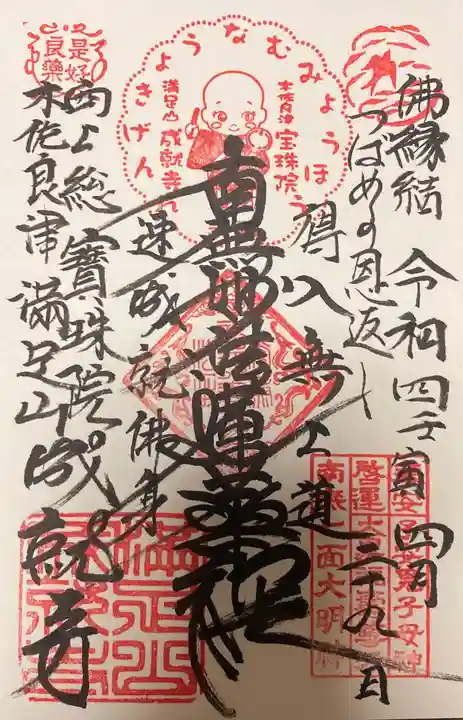 佛縁結 令和四壬寅 四月二十九日
つばめの恩返し
得入無上道
南無妙法蓮華経
速成就佛身
西上総 寳珠院
木佐良津 満足山 成就寺
なむみょうほうれんげきょう
木佐良津 宝珠院
満足山 成就寺
是好
良藥
鬼子母神
南無一面大明神